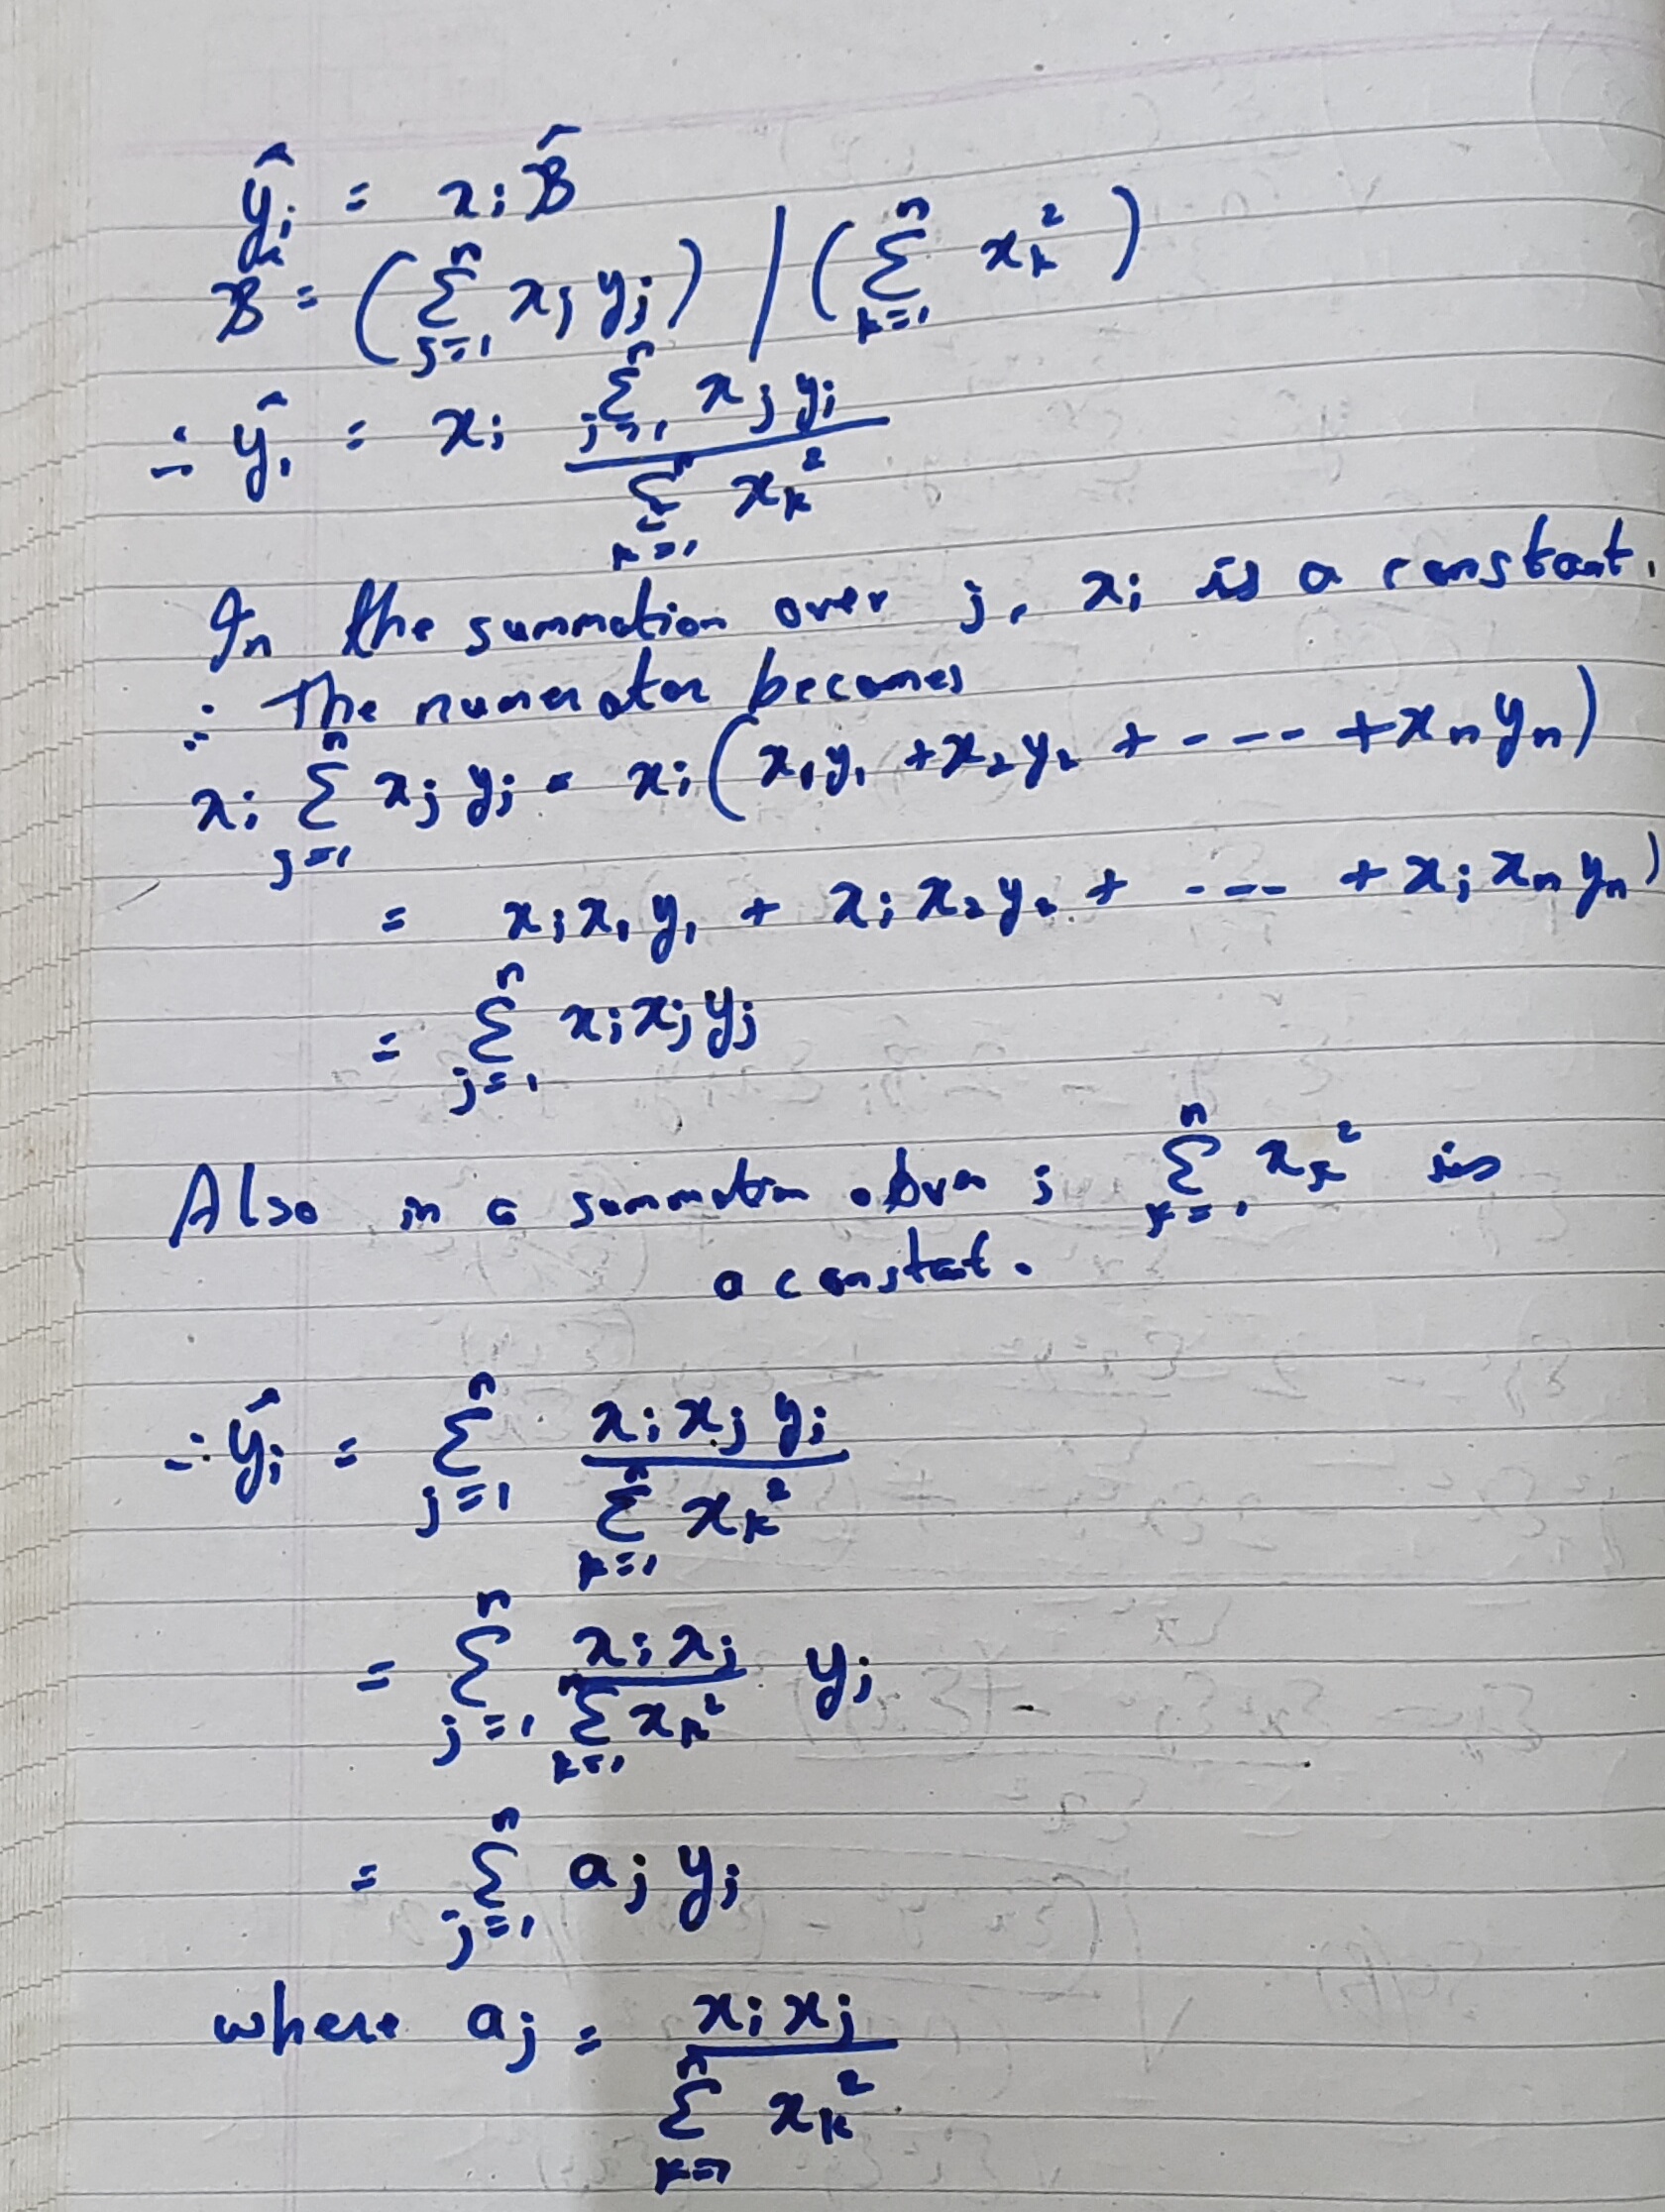 ŷᵢ = xᵢ β̂
β̂ = (∑ⁿⱼ₌₁ xⱼ yⱼ) / (∑ⁿₖ₌₁ xₖ²)
∴ ŷᵢ = xᵢ (∑ⁿⱼ₌₁ xⱼ yⱼ) / (∑ⁿₖ₌₁ xₖ²)
In the summation over j, xᵢ is a constant.
∴ The numerator becomes
xᵢ ∑ⁿⱼ₌₁ xⱼ yⱼ = xᵢ (x₁y₁ + x₂y₂ + ---- + xₙyₙ)
= xᵢx₁y₁ + xᵢx₂y₂ + ---- + xᵢxₙyₙ)
= ∑ⁿⱼ₌₁ xᵢxⱼyⱼ
Also in a summation over j ∑ⁿₖ₌₁ xₖ² is
a constant.
∴ ŷᵢ = ∑ⁿⱼ₌₁ (xᵢ xⱼ yⱼ) / (∑ⁿₖ₌₁ xₖ²)
= ∑ⁿⱼ₌₁ (xᵢ xⱼ) / (∑ⁿₖ₌₁ xₖ²) yⱼ
= ∑ⁿⱼ₌₁ aⱼ yⱼ
where aⱼ = (xᵢ xⱼ) / (∑ⁿₖ₌₁ xₖ²)